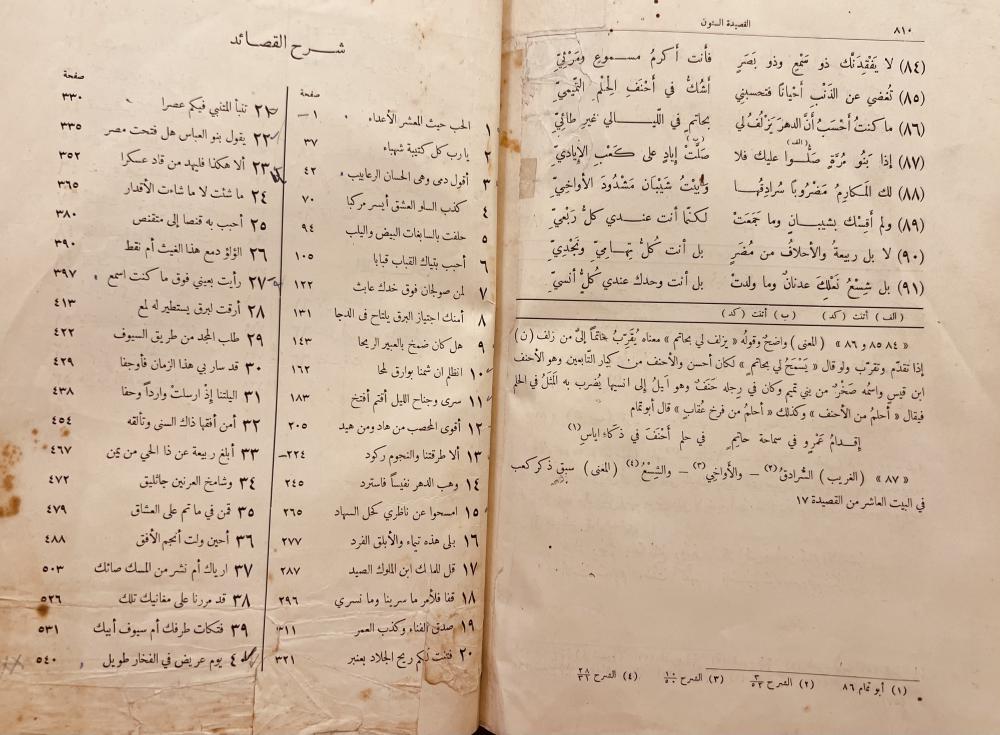 ٨١٠
القصيدة الستون
(٨٤) لا يَفْقِدَنْك ذو سَمْعٍ وذو بَصَرٍ فأنت أكرمُ مسموعٍ ومَرْئيِّ
(٨٥) تُغضي عن الذَنْبِ أحيانًا فتحسبني أشُكُّ في أَحْنَفِ الحِلْمِ التَّميميِّ
(٨٦) ما كنتُ أحْسَبُ أنَّ الدهرَ يَزْلُفُ لي بحاتمٍ في اللّيالي غيرِ طائيِّ
(٨٧) إذا بَنُو مُرَّةٍ صَلُّوا عليك فلا صَلَّتْ إيادٍ على كَعْبِ الإياديِّ
(الف) (ب)
(٨٨) لك المكارِمُ مَضْرُوبًا سُرادِقُها وبيْتُ شَيْبَان مَشْدُودَ الأواخِيِّ
(٨٩) ولم أَقِسْك بشيبانٍ وما جَمَعَتْ لكنّما أنت عندي كلُّ رَبْعِيِّ
(٩٠) لا بل ربيعةُ والأحلافُ من مُضَرٍ بل أنت كُلُّ تِهاميٍّ ونَجْدِيِّ
(٩١) بل شِسْعُ نَعْلِكَ عدنانٌ وما ولدتْ بل أنت وحدك عندي كُلُّ أنسيِّ
(الف) أثنت (كد) (ب) أثنت (كد)
« ٨٤ ٨٥ و ٨٦ » (المعنى) واضحٌ وقولُه « يزلف لي بحاتمٍ » معناه يُقَرِّبُ حاتماً إليَّ من زلف (ن)
إذا تقدّم وتقرّب ولو قال « يَسْمَحُ لي بحاتمٍ » لكان أحسن والأحنف من كبار التابعين وهو الأحنف
ابن قيس واسمُه صَخْرٌ من بني تميم وكان في رجله حَنَفٌ وهو المَيلُ إلى انسيها يُضرب به المَثَلُ في الحلم
فيقال « أحلم من الأحنف » وكذلك « أحلم من فرخ عُقاب » قال أبو تمام
إقدامُ عَمْرٍو في سماحة حاتمٍ في حلم أَحْنَفَ في ذكاء اياسِ (١)
« ٨٧ » (الغريب) السُّرادقُ (٢) – والأَواخِي (٣) – والشِسْعُ (٤) (المعنى) سبق ذكر كعب
في البيت العاشر من القصيدة ١٧
(١) أبو تمام ٨٦ (٢) الشرح ٣/٥٣ (٣) الشرح ١٠/٥٠ (٤) الشرح ٢٨/٣٦
شرح القصائد
صفحة
١ الحب حيث المعشر الأعداء ١
٢ يا رب كل كتيبة شهباء ٣٧
٣ أقول دمى وهى الحسان الرعابيب ٤٢
٤ كذب السلو العشق أيسر مركبا ٧٠
٥ حلفت بالسابغات البيض واليلب ٩٤
٦ أحبب بتياك القباب قبابا ١٠٥
٧ لمن صولجان فوق خدك عابث ١٢٢
٨ أمنك اجتياز البرق يلتاح فى الدجا ١٣١
٩ هل كان ضمخ بالعبير الريحا ١٤٣
١٠ انظلم ان شمنا بوارق لمحا ١٦٢
١١ سرى وجناح الليل أقتم أفتخ ١٨٣
١٢ أقوى المحصب من هاد ومن هيد ٢٠٥
١٣ ألا طرقتنا والنجوم ركود ٢٢٤
١٤ وهب الدهر نفيساً فاسترد ٢٤٥
١٥ امسحوا عن ناظري كحل السهاد ٢٦٥
١٦ بلى هذه تيماء والأبلق الفرد ٢٧٧
١٧ قل للمالك ابن الملوك الصيد ٢٨٧
١٨ قفا فلأمر ما سرينا وما نسري ٢٩٦
١٩ صدق الفناء وكذب العمر ٣١١
٢٠ فتقت لكم ريح الجلاد بعنبر ٣٢١
صفحة
٢١ تنبأ المتنبي فيكم عصرا ٣٣٠
٢٢ يقول بنو العباس هل فتحت مصر ٣٣٥
٢٣ ألا هكذا فليهد من قاد عسكرا ٣٥٢
٢٤ ما شئت لا ما شاءت الأقدار ٣٦٥
٢٥ أحبب به قنصا إلى متقنص ٣٨٠
٢٦ الؤلؤ دمع هذا الغيث أم نقط ٣٩٠
٢٧ رأيت بعيني فوق ما كنت اسمع ٣٩٧
٢٨ أرقت لبرق يستطير له لمع ٤١٣
٢٩ طلب المجد من طريق السيوف ٤٢٢
٣٠ قد سار بي هذا الزمان فأوجفا ٤٢٩
٣١ اليلتنا إذْ ارسلتْ وارداً وحفا ٤٣٨
٣٢ أمن أفقها ذاك السنى وتألقه ٤٥٤
٣٣ أبلغ ربيعة عن ذا الحي من يمن ٤٦٧
٣٤ وشامخ العرنين جاثليق ٤٧٢
٣٥ قمن في مأتم على العشاق ٤٧٩
٣٦ أحين ولت أنجم الأفق ٤٨٨
٣٧ ارياك أم نشر من المسك صائك ٥٠٣
٣٨ قد مررنا على مغانيك تلك ٥٢٦
٣٩ فتكات طرفك أم سيوف أبيك ٥٣١
٤٠ يوم عريض في الفخار طويل ٥٤٠